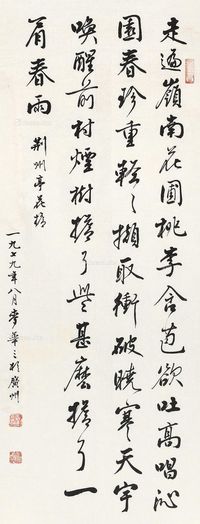 走遍嶺南花圃桃李含苞欲吐高唱沁
園春珍重輕々擷取衝破曉寒天宇
喚醒前村煙樹擔了些甚麼擔了一
肩春雨
荊州亭花擔
一九七九年八月麥華三於廣州